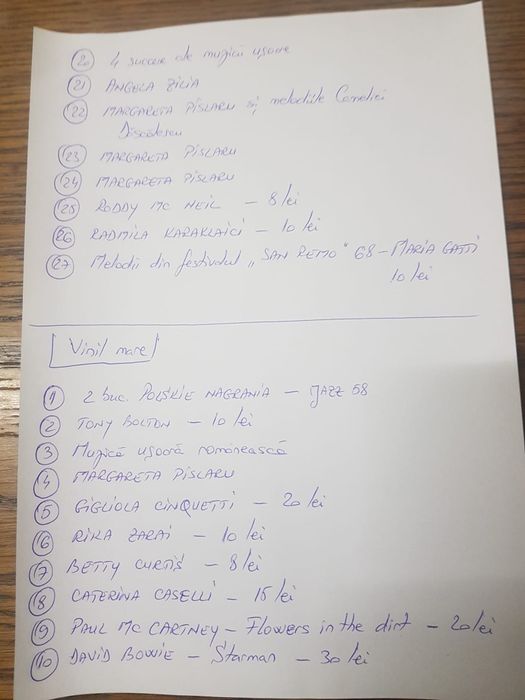 20 4 succese ale muzicii ușoare
21 ANGELA ZILIA
22 MARGARETA PÎSLARU și melodiile Cameliei
Dăscălescu
23 MARGARETA PÎSLARU
24 MARGARETA PÎSLARU
25 RODDY MC NEIL – 8 lei
26 RADMILA KARAKLAICI – 10 lei
27 Melodii din festivalul „SAN REMO" 68 – MARIA GATTI
10 lei
Vinil mare
1 2 buc. POLSKIE NAGRANIA – JAZZ 58
2 TONY BOLTON – 10 lei
3 Muzică ușoară românească
4 MARGARETA PÎSLARU
5 GIGLIOLA CINQUETTI – 20 lei
6 RIKA ZARAI – 10 lei
7 BETTY CURTIS – 8 lei
8 CATERINA CASELLI – 15 lei
9 PAUL MC CARTNEY – Flowers in the dirt – 20 lei
10 DAVID BOWIE – Starman – 30 lei